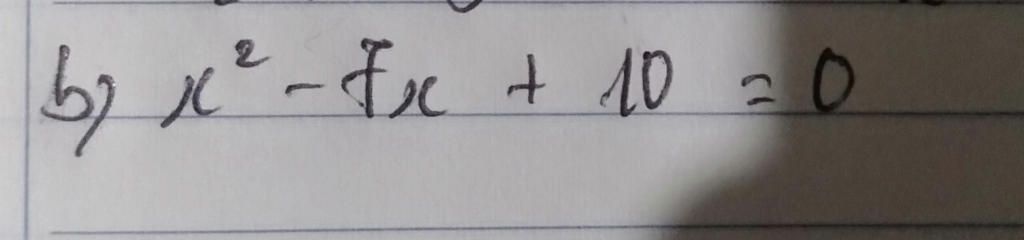 b) x² - 7x + 10 = 0